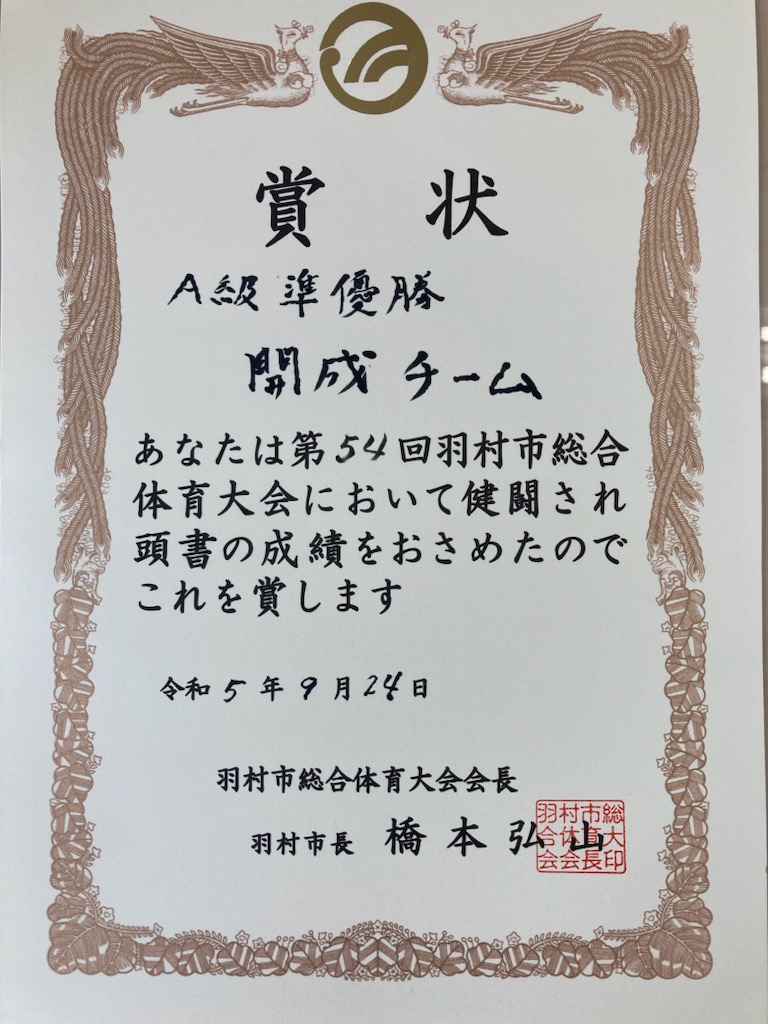 賞状
A級準優勝
開成チーム
あなたは第54回羽村市総合
体育大会において健闘され
頭書の成績をおさめたので
これを賞します
令和5年9月24日
羽村市総合体育大会会長
羽村市長 橋本弘山
羽村市総
合体育大
会会長印